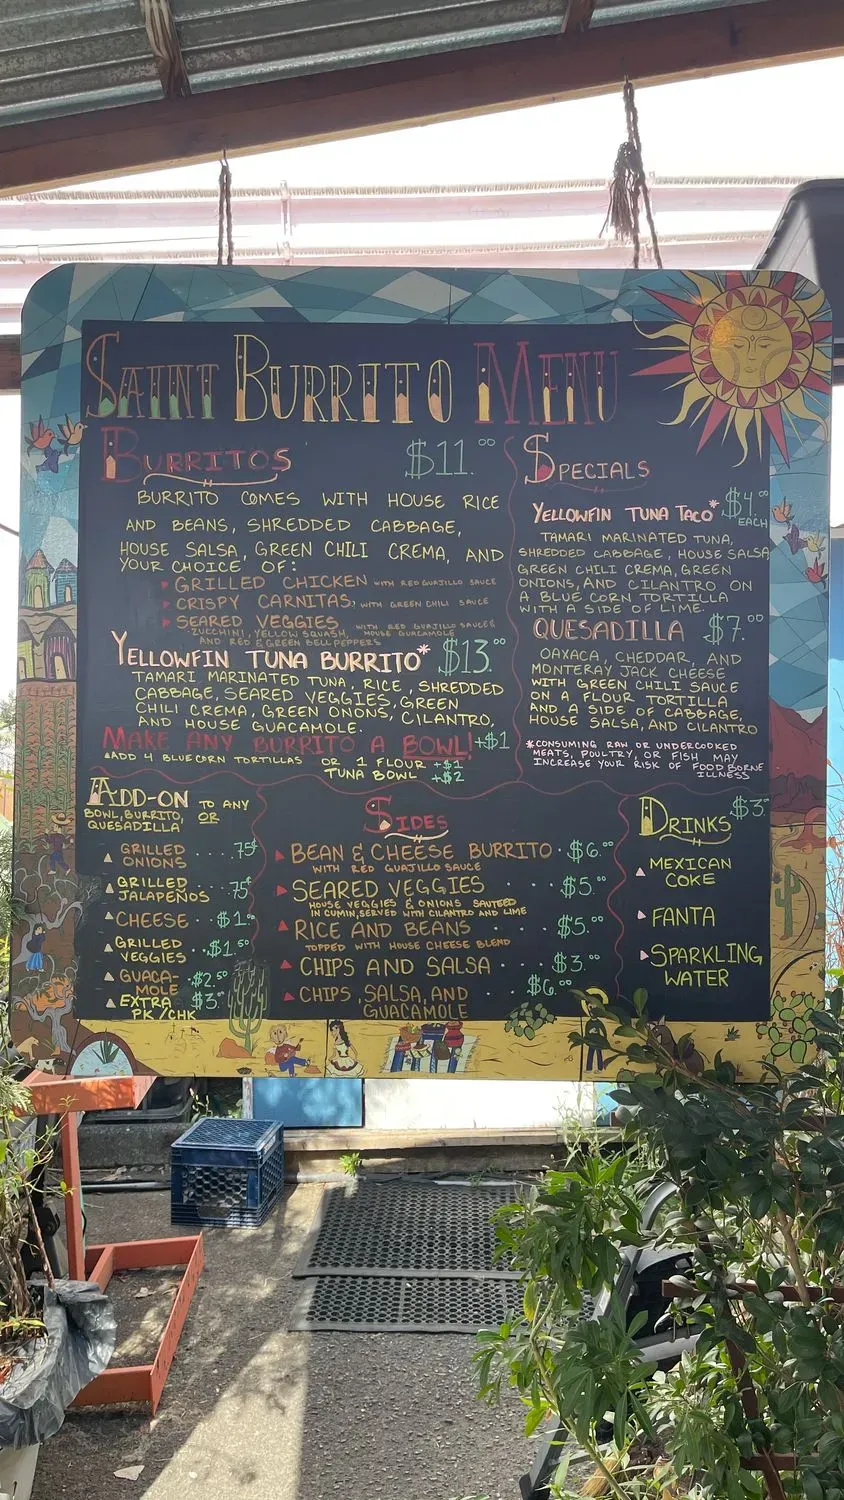 SAINT BURRITO MENU
BURRITOS $11.00
BURRITO COMES WITH HOUSE RICE
AND BEANS, SHREDDED CABBAGE,
HOUSE SALSA, GREEN CHILI CREMA, AND
YOUR CHOICE OF:
GRILLED CHICKEN WITH RED GUAJILLO SAUCE
CRISPY CARNITAS, WITH GREEN CHILI SAUCE
SEARED VEGGIES WITH RED GUAJILLO SAUCE &
ZUCCHINI, YELLOW SQUASH, HOUSE GUACAMOLE
AND RED & GREEN BELL PEPPERS
YELLOWFIN TUNA BURRITO* $13.00
TAMARI MARINATED TUNA, RICE, SHREDDED
CABBAGE, SEARED VEGGIES, GREEN
CHILI CREMA, GREEN ONIONS, CILANTRO,
AND HOUSE GUACAMOLE.
MAKE ANY BURRITO A BOWL! +$1
ADD 4 BLUE CORN TORTILLAS OR 1 FLOUR +$1
TUNA BOWL +$2
SPECIALS
YELLOWFIN TUNA TACO* $4.00
EACH
TAMARI MARINATED TUNA,
SHREDDED CABBAGE, HOUSE SALSA
GREEN CHILI CREMA, GREEN
ONIONS, AND CILANTRO ON
A BLUE CORN TORTILLA
WITH A SIDE OF LIME.
QUESADILLA $7.00
OAXACA, CHEDDAR, AND
MONTERAY JACK CHEESE
WITH GREEN CHILI SAUCE
ON A FLOUR TORTILLA
AND A SIDE OF CABBAGE,
HOUSE SALSA, AND CILANTRO
*CONSUMING RAW OR UNDERCOOKED
MEATS, POULTRY, OR FISH MAY
INCREASE YOUR RISK OF FOOD BORNE
ILLNESS
ADD-ON TO ANY
BOWL, BURRITO, OR
QUESADILLA
GRILLED
ONIONS .... 75¢
GRILLED
JALAPEÑOS .. 75¢
CHEESE .. $1.00
GRILLED
VEGGIES .. $1.50
GUACA-
MOLE $2.50
EXTRA $3.00
PK/CHK
SIDES
BEAN & CHEESE BURRITO . $6.00
WITH RED GUAJILLO SAUCE
SEARED VEGGIES . . . $5.00
HOUSE VEGGIES & ONIONS SAUTEED
IN CUMIN, SERVED WITH CILANTRO AND LIME
RICE AND BEANS . . . $5.00
TOPPED WITH HOUSE CHEESE BLEND
CHIPS AND SALSA . . . $3.00
CHIPS, SALSA, AND . . $6.00
GUACAMOLE
DRINKS $3.00
MEXICAN
COKE
FANTA
SPARKLING
WATER